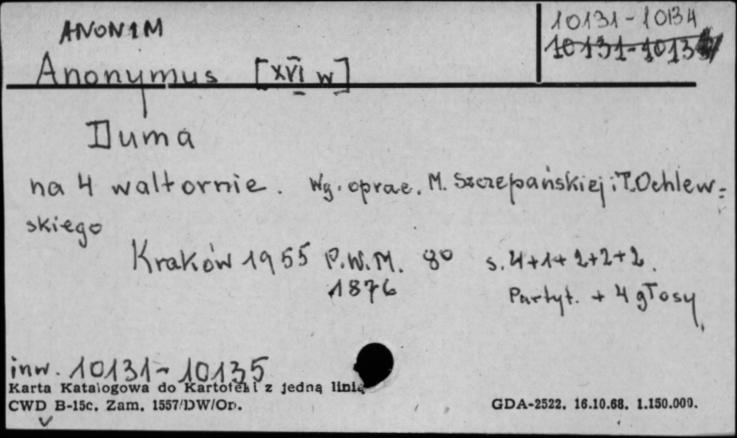 ANONIM
10131-10134
10131-1013
Anonymus [XVI w]
Duma
na 4 waltornie. Wg. oprac. M. Szczepańskiej i T. Ochlew=
skiego
Kraków 1955 P.W.M. 8° s. 4+1+2+2+2.
1876
Partyt. + 4 głosy
inw. 10131-10135
Karta Katalogowa do Kartoteki z jedną linią
CWD B-15c. Zam. 1557/DW/Op.
GDA-2522. 16.10.68. 1.150.000.